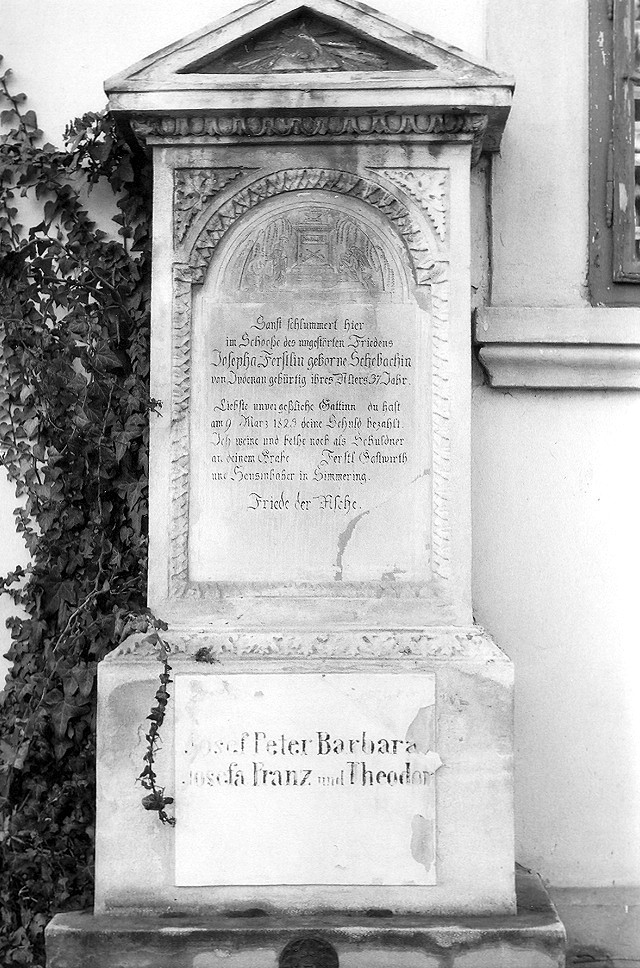 Sanft schlummert hier
im Schooße des ungestörten Friedens
Josepha Ferstlin geborne Schebachin
von Iudenau gebürtig ihres Alters 37 Jahr.
Liebste unvergeßliche Gattinn du hast
am 9 März 1823 deine Schuld bezahlt.
Ich weine und bethe noch als Schuldner
an deinem Grabe Ferstl Gastwirth
und Hausinhaber in Simmering.
Friede der Asche.
Josef Peter Barbara
Josefa Franz und Theodor